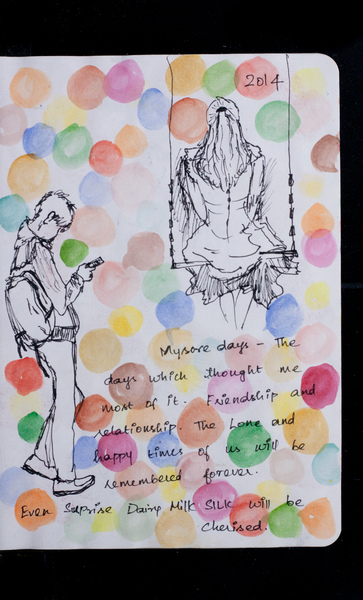 2014
Mysore days - The
days which thought me
most of it. Friendship and
relationship. The Love and
happy times of us will be
remembered forever.
Even Suprise Dairy Milk SILK will be
Cherised.